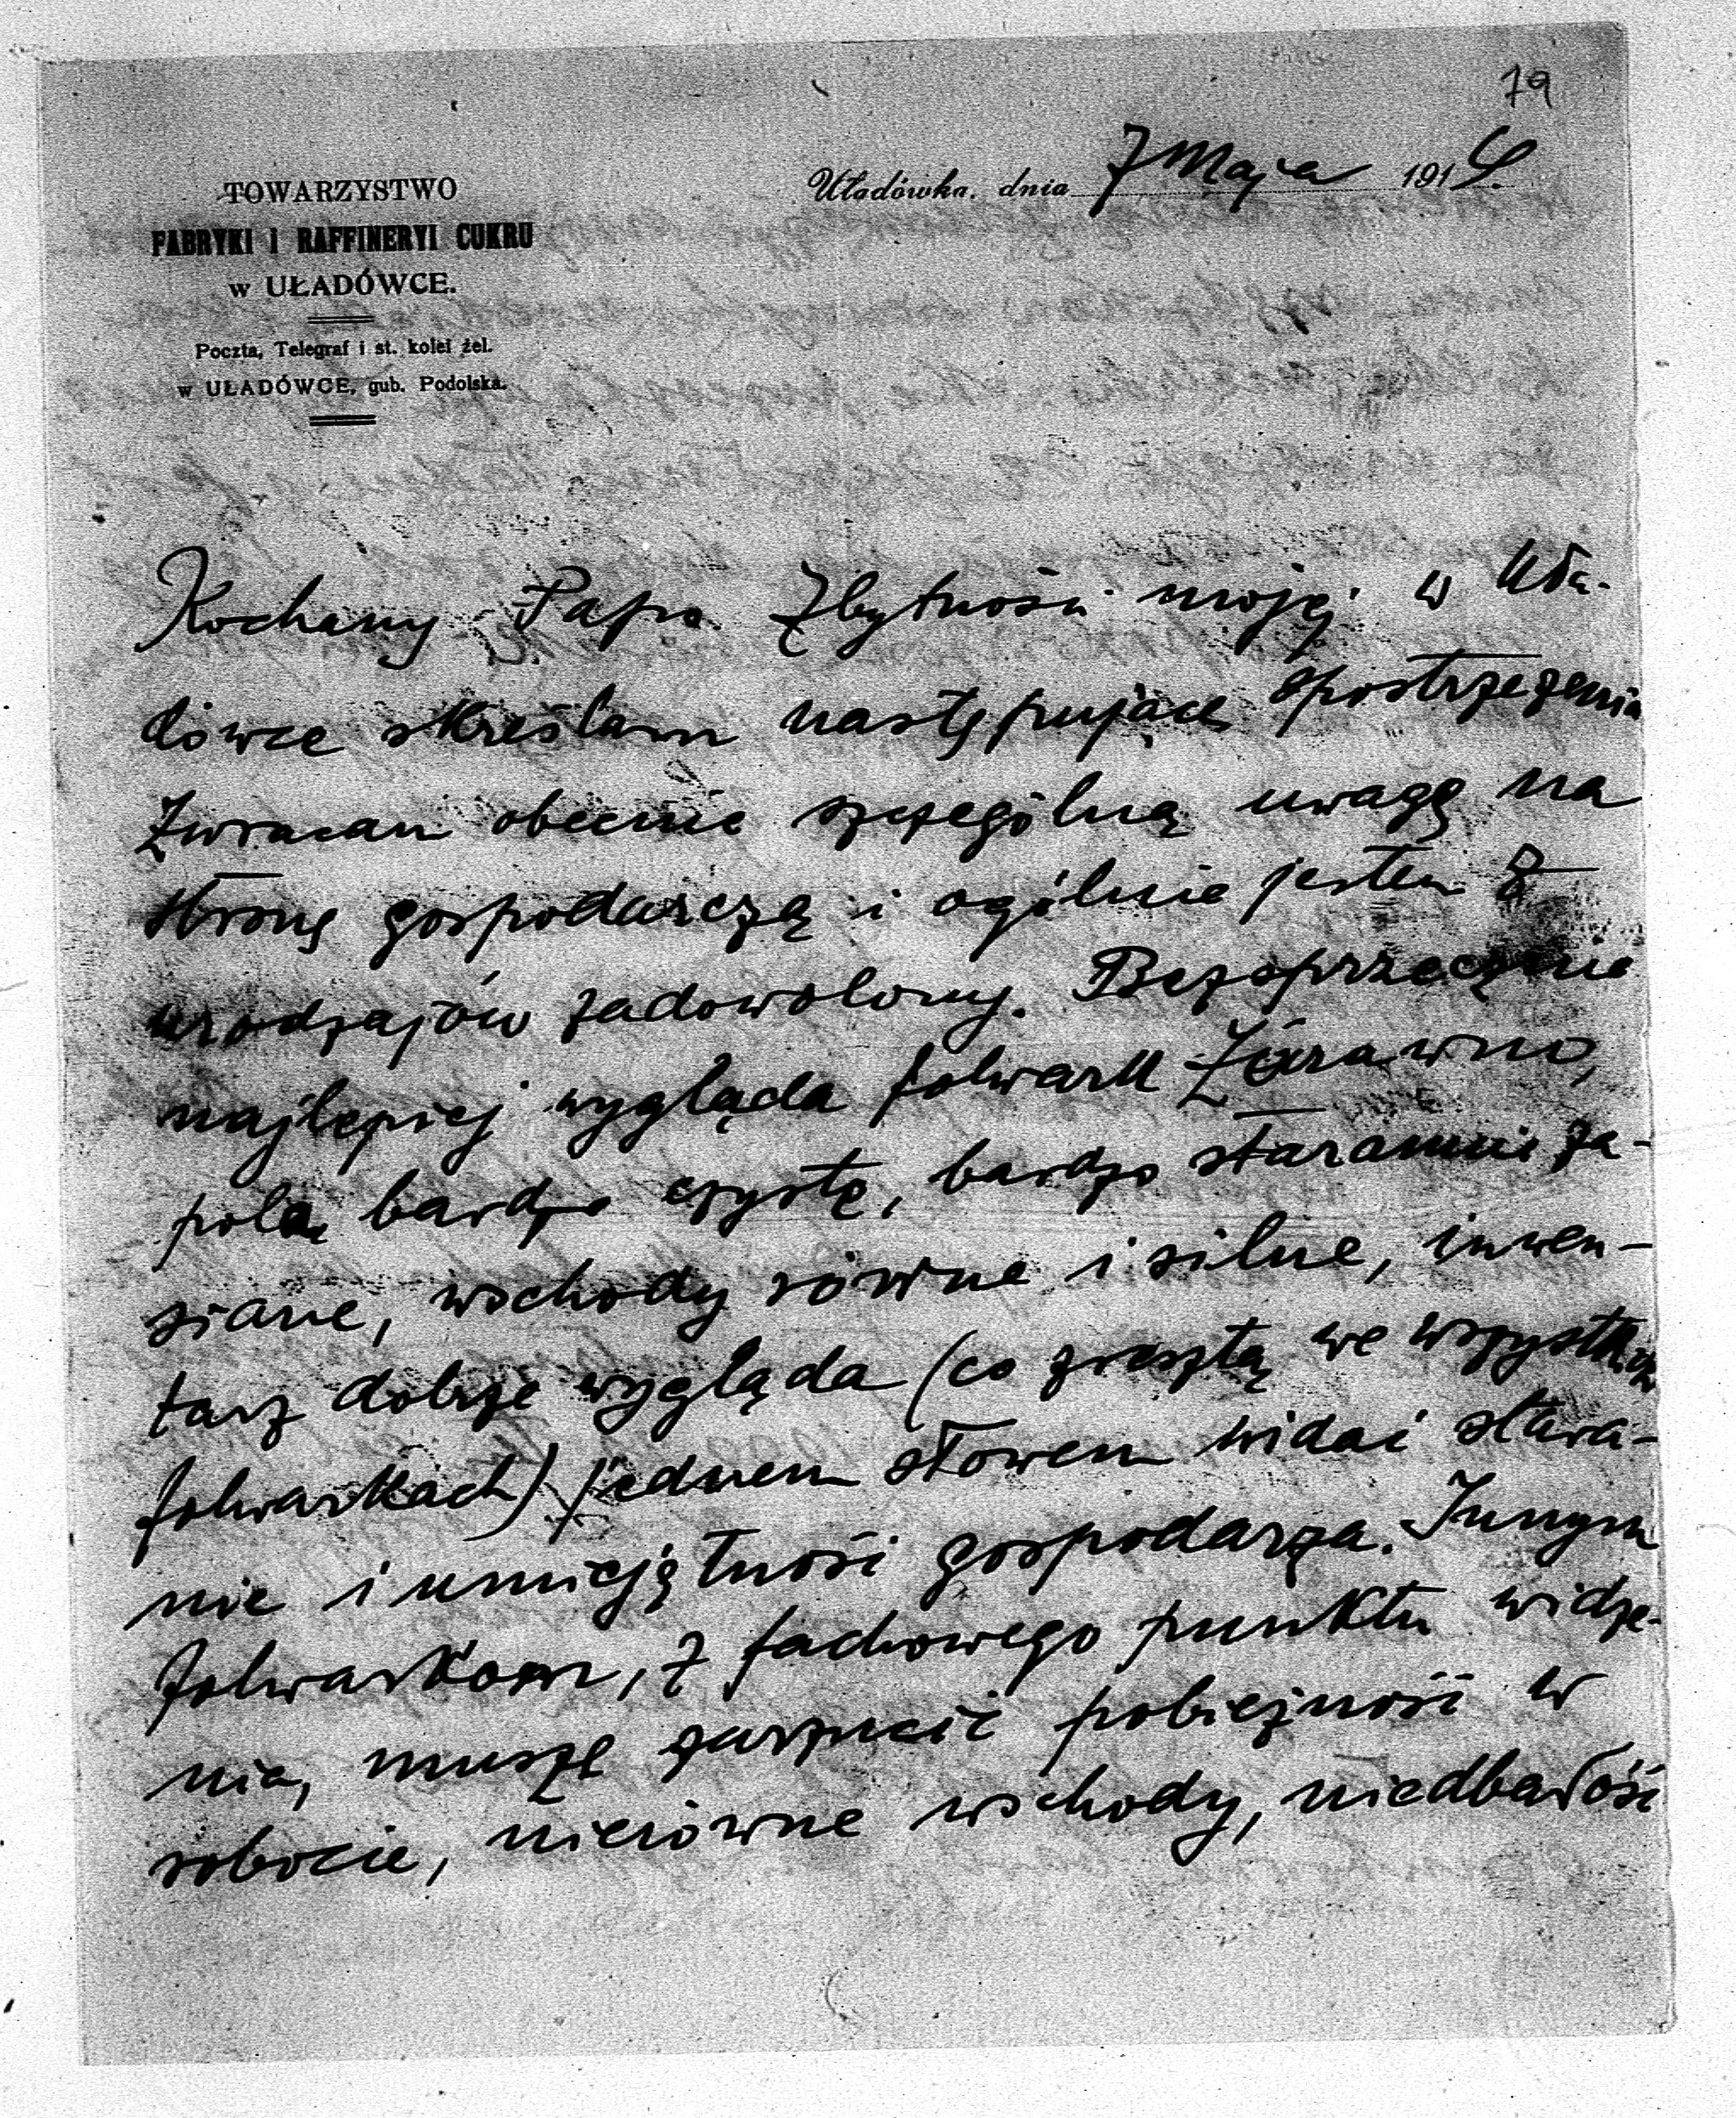 79
Uładówka, dnia 7 Maja 1914.
TOWARZYSTWO
FABRYKI I RAFFINERYI CUKRU
w UŁADÓWCE.
Poczta, Telegraf i st. kolei żel.
w UŁADÓWCE, gub. Podolska.
Kochany Papo Zbytności mojej w Uła-
dówce skreślam następujące spostrzeżenia
Zwracam obecnie szczególną uwagę na
stronę gospodarczą i ogólnie jestem z
urodzajów zadowolony. Bezsprzecznie
najlepiej wygląda folwark Żórawno,
pola bardzo czyste, bardzo starannie za-
siane, wschody równe i silne, inwen-
tarz dobrze wygląda (co zresztą we wszystkich
folwarkach) jednem słowem widać stara-
nie i umiejętność gospodarza. Innym
folwarkom, z fachowego punktu widze-
nia, muszę zarzucić pobieżność w
robocie, nierówne wschody, niedbałość